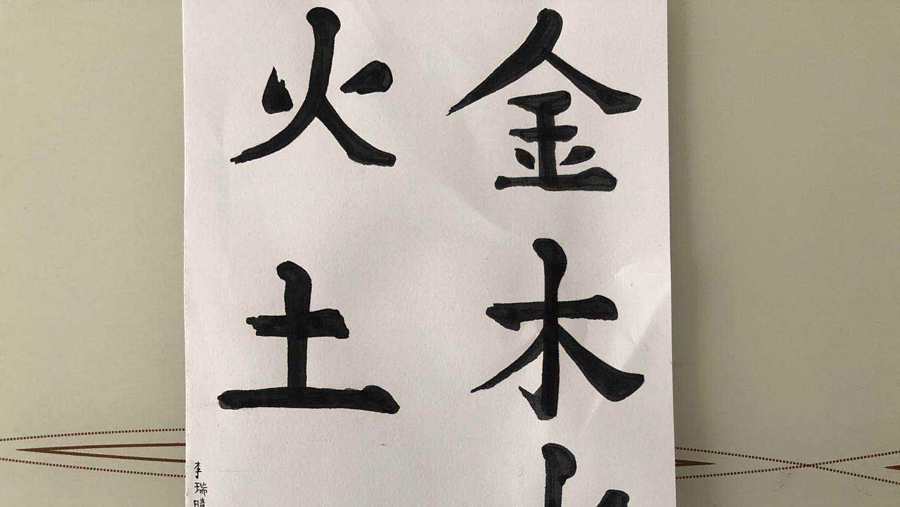 金木
火土
李瑞